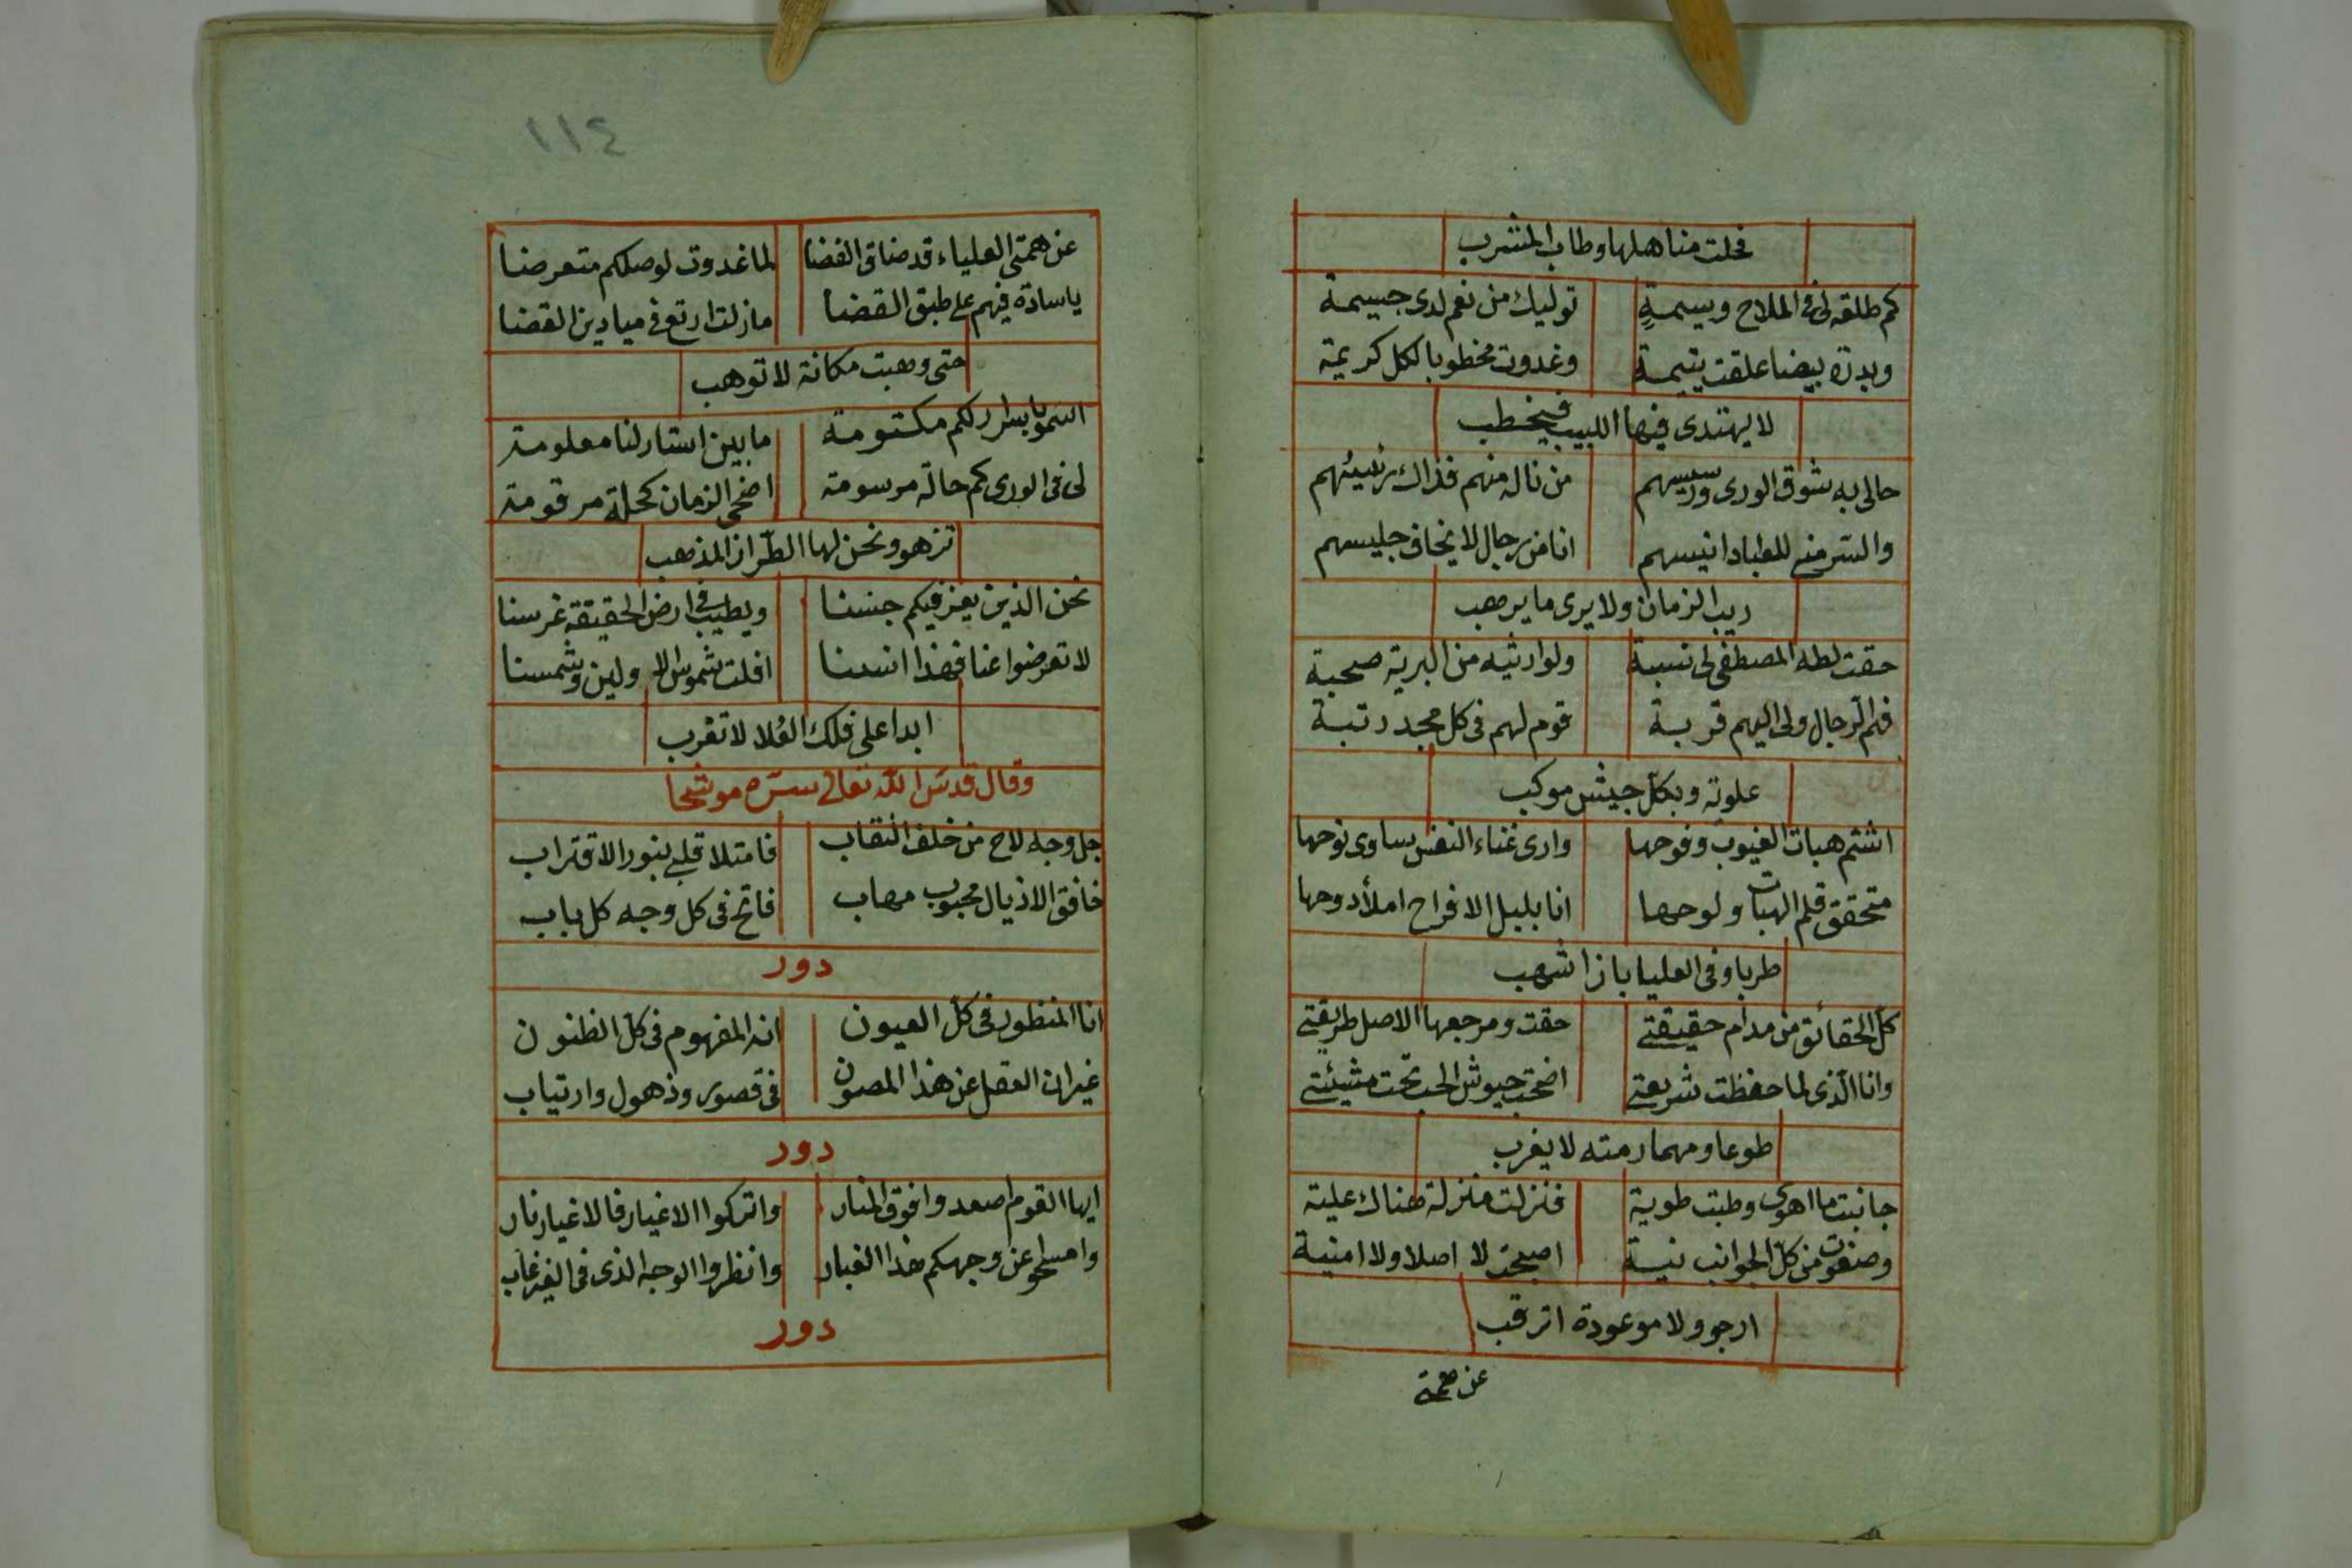 فحلت مناهلها وطاب المشرب
كم طلقة لى فى الملاح وسيمةٍ توليك من نعم لدى جسيمة
وبدرة بيضا علقت يتيمة وغدوت مخطوبا لكل كريمة
لا يهتدى فيها اللبيب فيخطب
حالى به شوق الورى ورسيسهم من ناله منهم فذاك رئيسهم
والسر منى للعباد انيسهم انا من رجال لا يخاف جليسهم
ريب الزمان ولا يرى ما يرهب
حقت لطه المصطفى لى نسبة ولوارثيه من البرية صحبة
فهم الرجال ولى اليهم قربة قوم لهم فى كل مجد رتبة
علوته وبكل جيش موكب
اشتم هبات الغيوب وفوحها وارى غناء النفس ساوى نوحها
متحقق قلم الهبات ولوحها انا بلبل الافراح املأ دوحها
طربا وفى العليا باز اشهب
كل الحقائق من مدام حقيقتى حقت ومرجعها الاصل طريقتى
وانا الذى لما حفظت شريعتى اضحت جيوش الحب تحت مشيئتى
طوعا ومهما رمته لا يغرب
جانبت ما اهوى وطبت طوية فنزلت منزلة هناك علية
وصفوت من كل الجوانب نية اصبحت لا اصلا ولا امنية
ارجو ولا موعودة اترقب
عن همة
١١٤
عن همتى العلياء قد ضاق الفضا لما غدوت لوصلكم متعرضا
يا سادة فيهم على طبق القضا ما زلت ارتع فى ميادين القضا
حتى وهبت مكانة لا توهب
اسمو باسرار لكم مكتومة ما بين استار لنا معلومة
لى فى الورى كم حالة مرسومة اضحى الزمان كحلة مرقومة
تزهو ونحن لها الطراز المذهب
نحن الذين يعز فيكم جنسنا ويطيب فى ارض الحقيقة غرسنا
لا تعرضوا عنا فهذا انسنا افلت شموس الاولين وشمسنا
ابدا على فلك العُلا لا تغرب
وقال قدس الله تعالى سره موشحا
جل وجه لاح من خلف النقاب فامتلا قلبى بنور الاقتراب
خافق الاذيال محبوب مهاب فاتح فى كل وجه كل باب
دور
انا المنظور فى كل العيون انه المفهوم فى كل الظنون
غير ان العقل عن هذا المصون فى قصور وذهول وارتياب
دور
ايها القوم اصعدوا فوق المنار واتركوا الاغيار فالاغيار نار
وامسحوا عن وجهكم هذا الغبار وانظروا الوجه الذى فى الغير غاب
دور